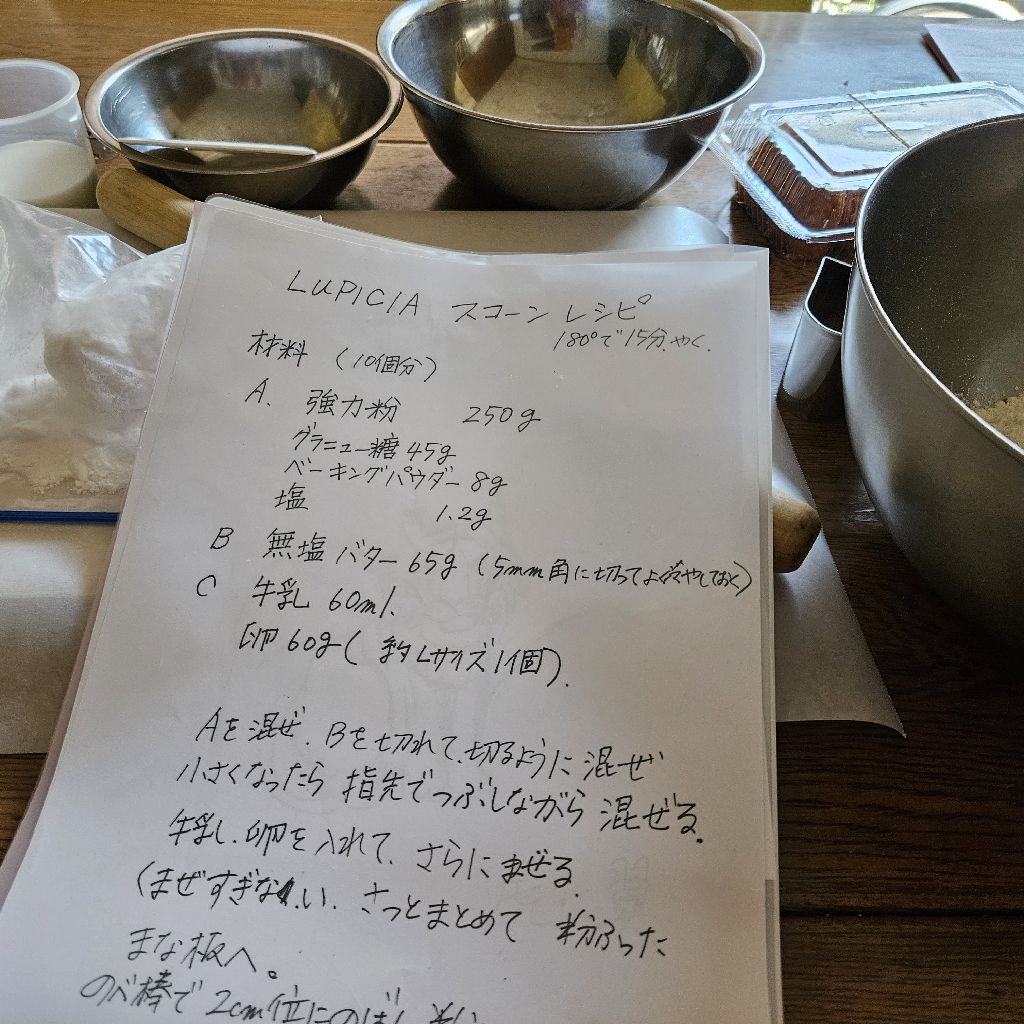 LUPICIA スコーン レシピ
180°で15分.やく.
材料 (10個分)
A. 強力粉 250g
グラニュー糖 45g
ベーキングパウダー 8g
塩 1.2g
B 無塩バター 65g (5mm角に切ってよく冷やしておく)
C 牛乳 60ml.
卵 60g (約Lサイズ1個).
Aを混ぜ. Bを切れて.切るように混ぜ
小さくなったら 指先でつぶしながら 混ぜる.
牛乳.卵を入れて. さらにまぜる.
(まぜすぎない. さっとまとめて 粉ふった
まな板へ。
のべ棒で 2cm位にのばし